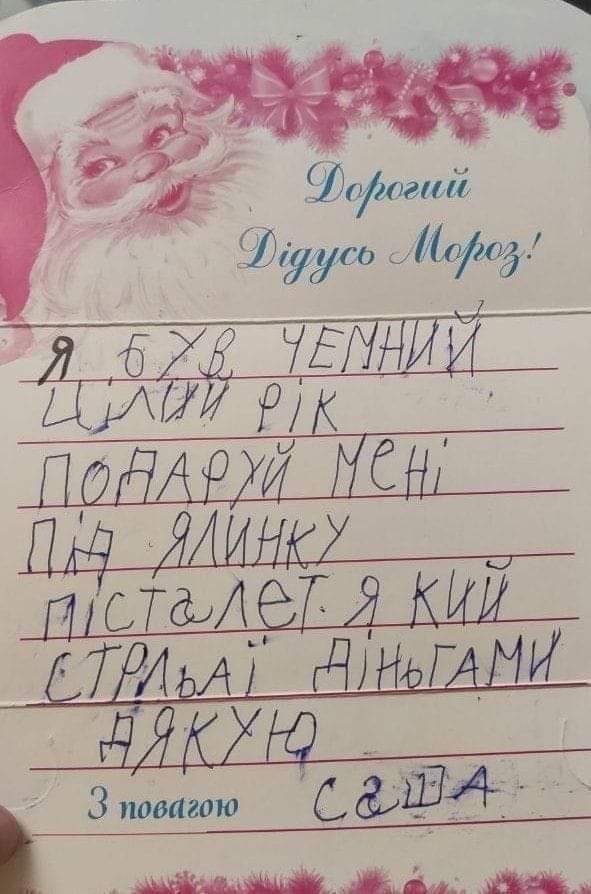 Дорогий
Дідусь Мороз!
Я БУВ ЧЕМНИЙ
ЦіЛИЙ РіК
ПОДАРУЙ МеНі
ПіД ЯЛИНКУ
ПіСТаЛеТ. Я КИЙ
СТРЛЬАЇ ДіНЬГАМИ
ДЯКУЮ
З повагою СаША